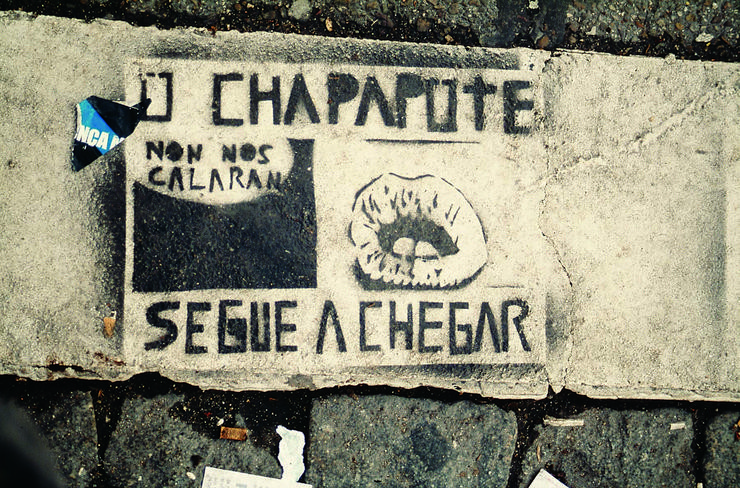 O CHAPAPOTE
NON NOS
CALARAN
SEGUE A CHEGAR